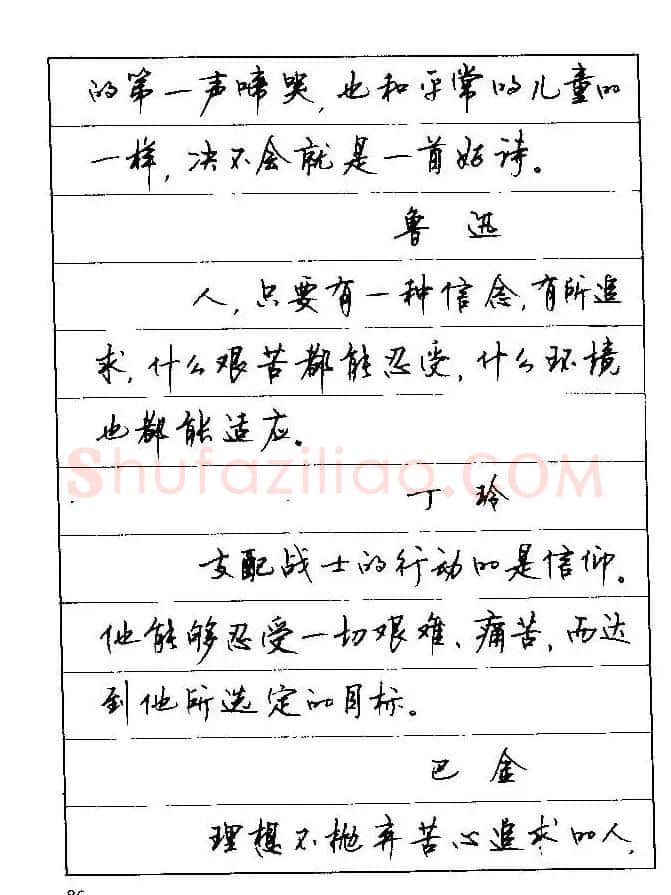 的第一声啼哭,也和平常的儿童的
一样,决不会就是一首好诗。
鲁迅
人,只要有一种信念,有所追
求,什么艰苦都能忍受,什么环境
也都能适应。
Shufaziliao.COM
丁玲
支配战士的行动的是信仰。
他能够忍受一切艰难、痛苦,而达
到他所选定的目标。
巴金
理想不抛弃苦心追求的人,
86